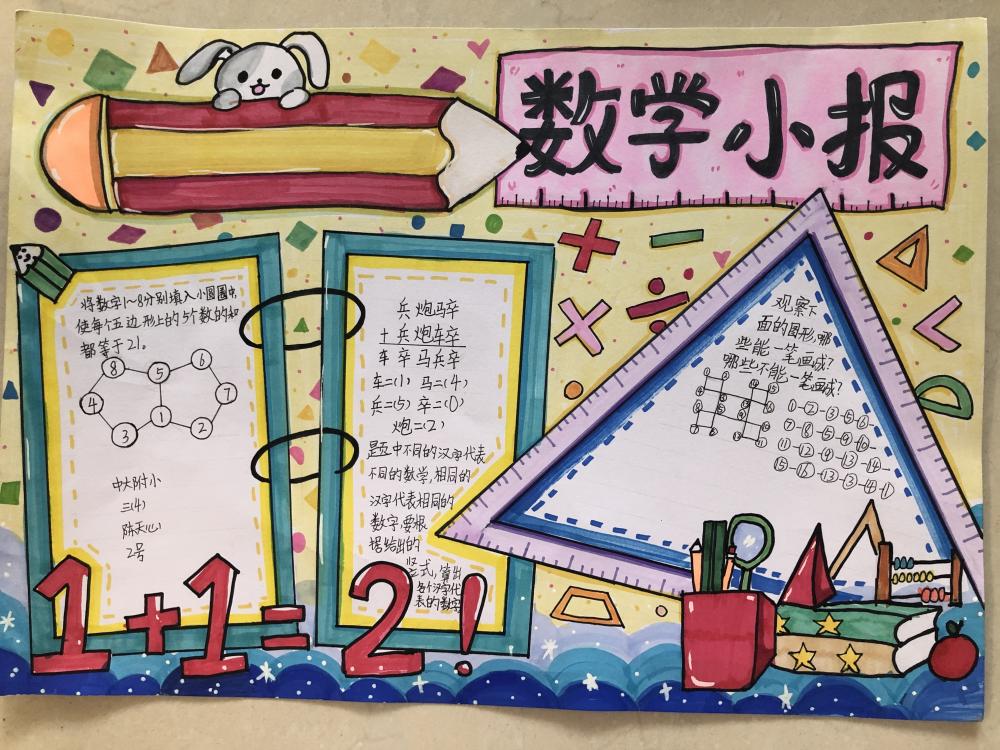 数学小报
将数字1~8分别填入小圆圈中,
使每个五边形上的5个数的和
都等于21。
8
5
6
4
7
3
1
2
中大附小
三(4)
陈天心
2号
兵炮马卒
+兵炮车卒
车卒马兵卒
车=(1) 马=(4)
兵=(5) 卒=(0)
炮=(2)
题中不同的汉字代表
不同的数学,相同的
汉字代表相同的
数字,要根
据给出的
竖式,算出
各个汉字代
表的数字
观察下
面的图形,哪
些能一笔画成?
哪些不能一笔画成?
①-②-③-⑤-⑥-
⑦-⑧-⑤-④-⑩-
⑪-⑫-⑨-⑬-⑭-
⑮-⑯-⑬-③-④-①
1+1=2!